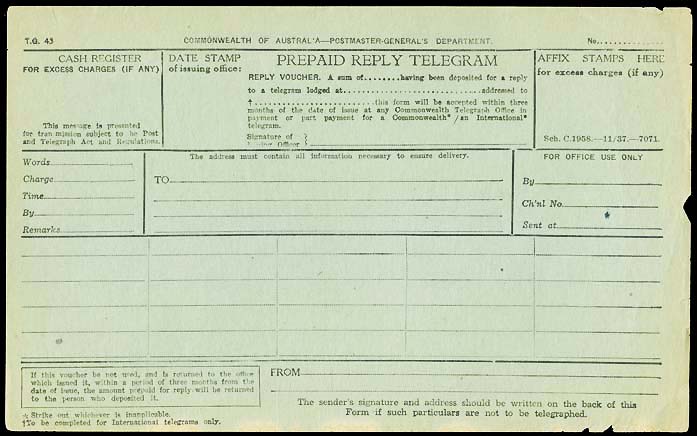 T.G. 43
COMMONWEALTH OF AUSTRAL'A—POSTMASTER-GENERAL'S DEPARTMENT.
No...............
CASH REGISTER
FOR EXCESS CHARGES (IF ANY)
This message is presented
for tran mission subject to he Post
and Telegraph Act and Regulations.
DATE STAMP
of issuing office:
PREPAID REPLY TELEGRAM
REPLY VOUCHER. A sum of........having been deposited for a reply
to a telegram lodged at................................addressed to
†............................this form will be accepted within three
months of the date of issue at any Commonwealth Telegraph Office in
payment or part payment for a Commonwealth* /an International*
telegram.
Signature of }
Issuing Officer }
AFFIX STAMPS HERE
for excess charges (if any)
Sch. C.1958.—11/37.—7071.
Words
Charge
Time
By
Remarks
The address must contain all information necessary to ensure delivery.
TO
FOR OFFICE USE ONLY
By
Ch'nl No.
Sent at
If this voucher be not used, and is returned to the office
which issued it, within a period of three months from the
date of issue, the amount prepaid for reply will be returned
to the person who deposited it.
* Strike out whichever is inapplicable.
†To be completed for International telegrams only.
FROM
The sender's signature and address should be written on the back of this
Form if such particulars are not to be telegraphed.